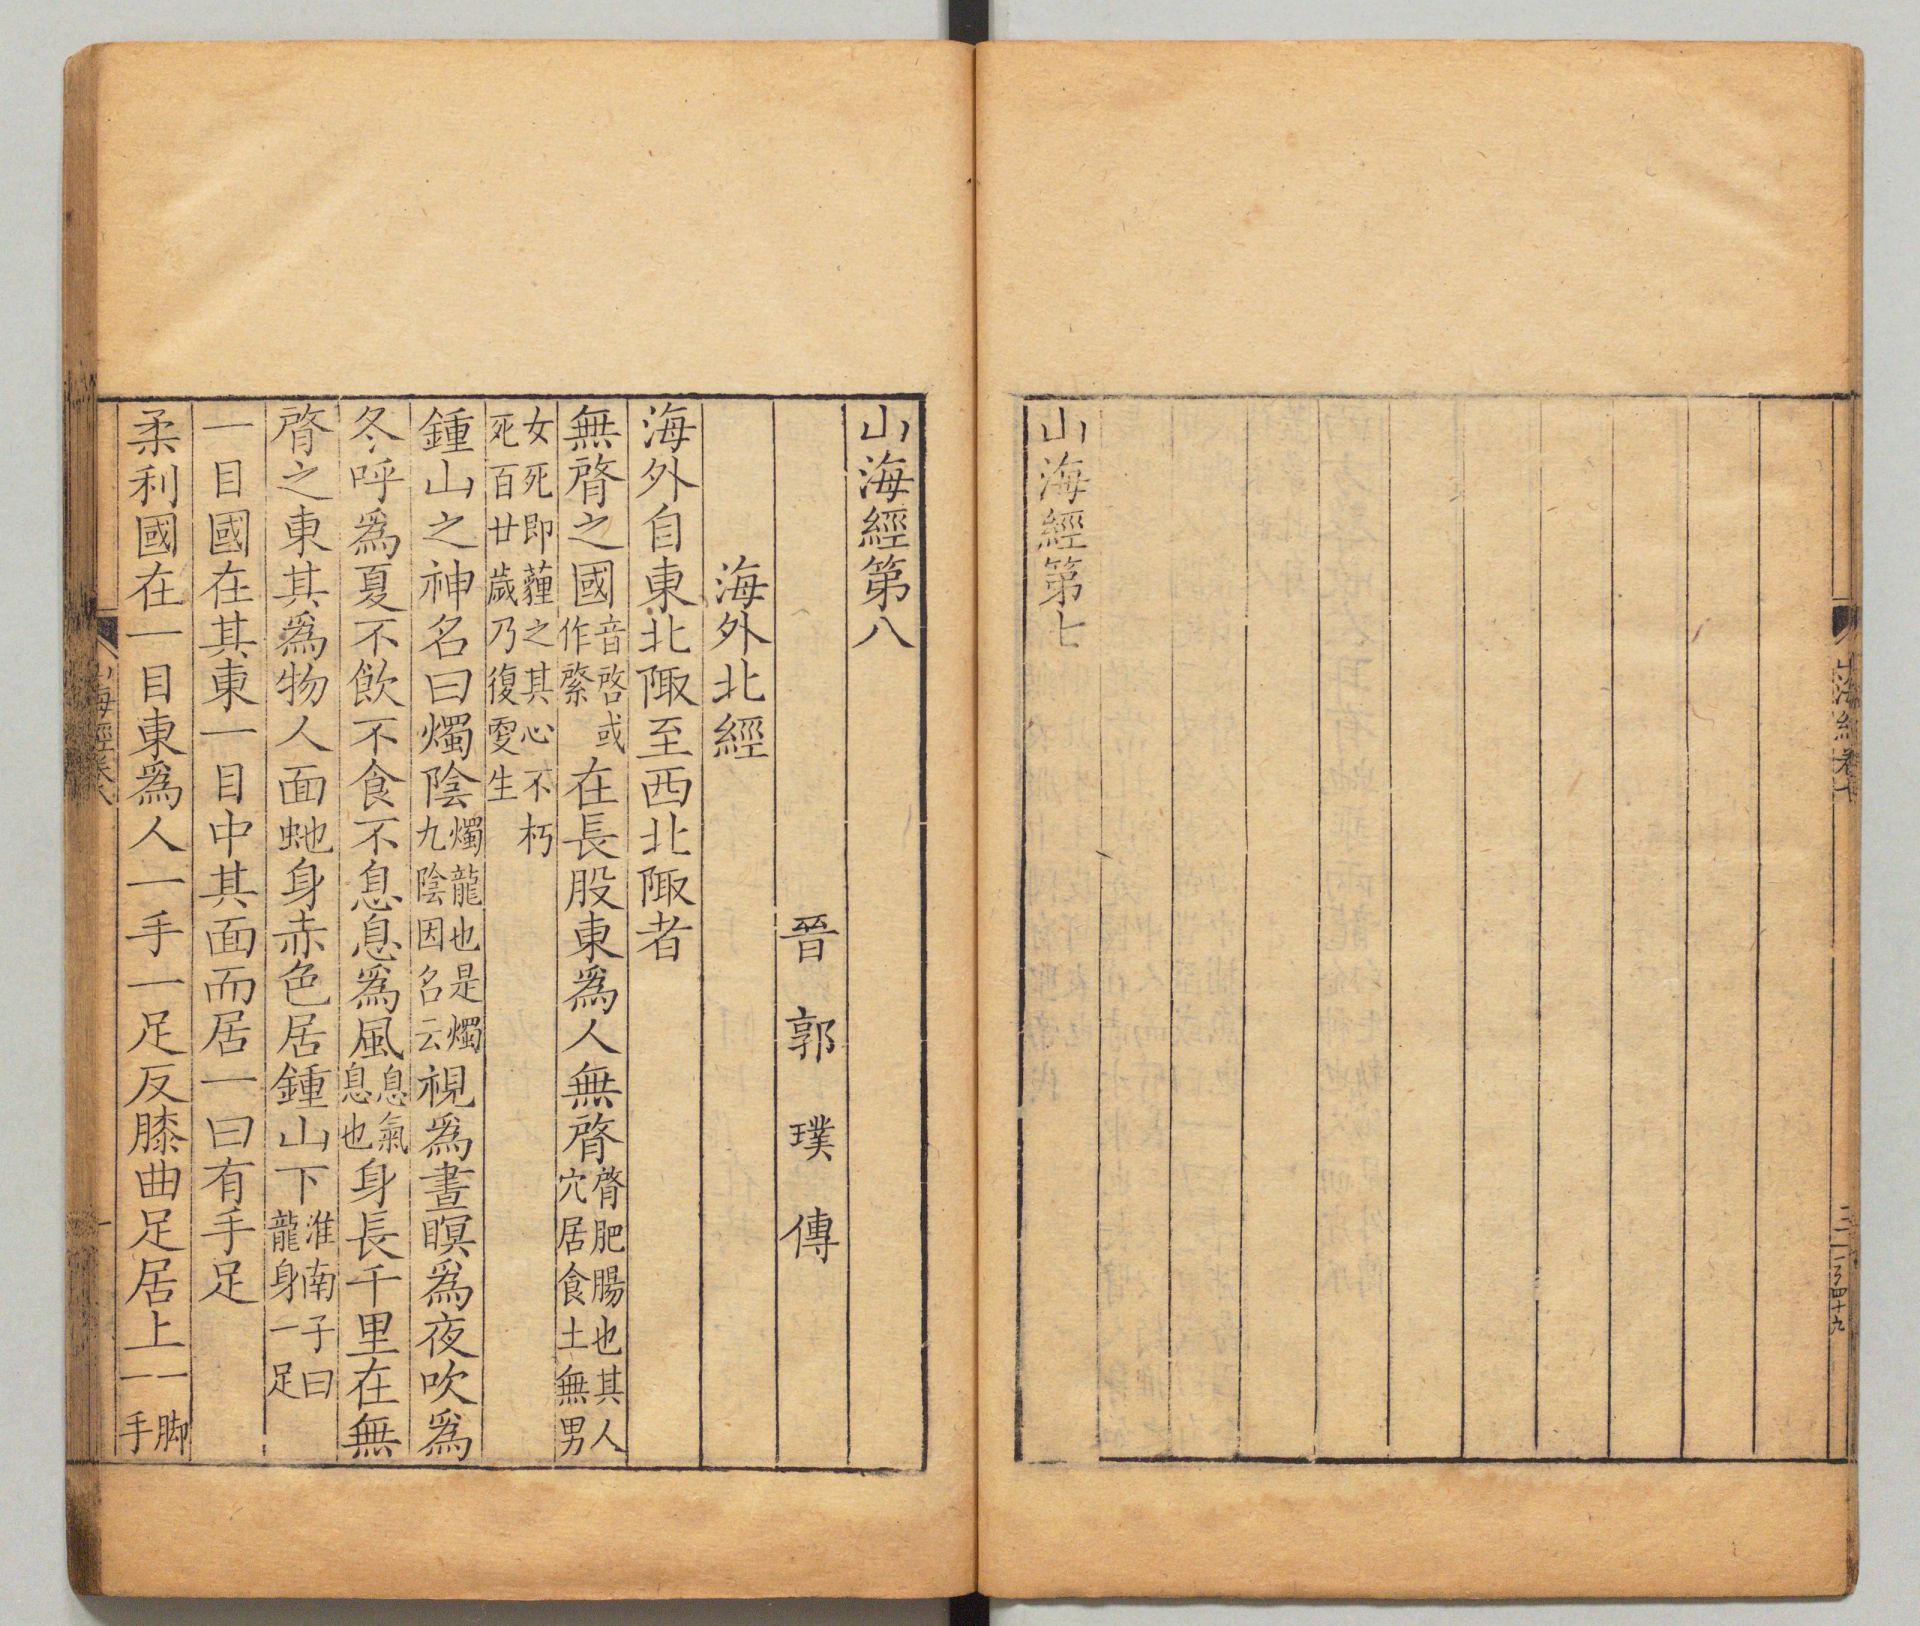 山海經卷七
三
山海經第七
山海經第八
晉郭璞傳
海外北經
海外自東北陬至西北陬者
無䏿之國音啓或作綮在長股東爲人無䏿䏿肥腸也其人穴居食土無男
女死即薶之其心不朽死百廿歲乃復更生
鍾山之神名曰燭陰燭龍也是燭九陰因名云視爲晝瞑爲夜吹爲
冬呼爲夏不飲不食不息息爲風息氣息也身長千里在無
䏿之東其爲物人面虵身赤色居鍾山下淮南子曰龍身一足
一目國在其東一目中其面而居一曰有手足
柔利國在一目東爲人一手一足反膝曲足居上一脚一手
山海經卷八